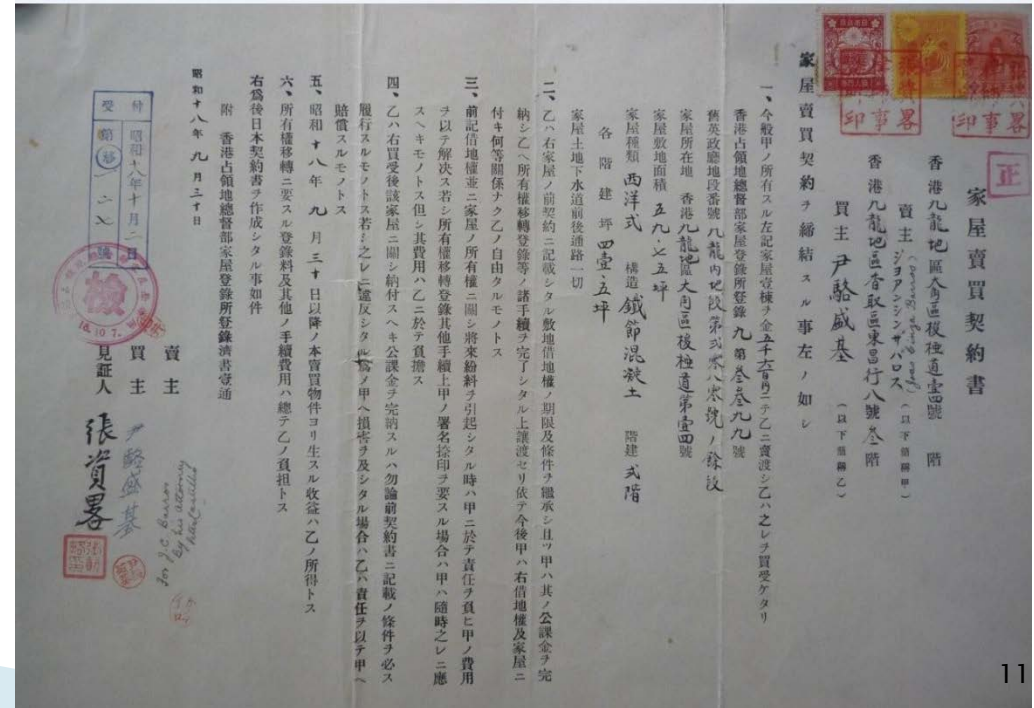 家屋賣買契約書
香港九龍地區大角區後極道壹四號 階
賣主 ジヨアンシンザバロス (以下簡稱甲)
香港九龍地區香取區東昌行八號叁階
買主 尹駱盛基 (以下簡稱乙)
家屋賣買契約ヲ締結スル事左ノ如シ
一、今般甲ノ所有スル左記家屋壹棟ヲ金五千六百円ニテ乙ニ賣渡シ乙ハ之レヲ買受ケタリ
香港占領地總督部家屋登錄所登錄 九 第叁叁九九號
舊英政廳地段番號 九龍內地段第弍零八零號ノ餘段
家屋所在地 香港九龍地區大角區後極道第壹四號
家屋敷地面積 五九・七五坪
家屋種類 西洋式 構造 鐵節混凝土 階建 弍階
各階建坪 四壹・五坪
家屋土地下水道前後通路一切
二、乙ハ右家屋ノ前契約ニ記載シタル敷地借地權ノ期限及條件ヲ繼承シ且ツ甲ハ其ノ公課金ヲ完
納シ乙ヘ所有權移轉登錄等ノ諸手續ヲ完了シタル上讓渡セリ依テ今後甲ハ右借地權及家屋ニ
付キ何等關係ナク乙ノ自由タルモノトス
三、前記借地權並ニ家屋ノ所有權ニ關シ將來紛糾ヲ引起シタル時ハ甲ニ於テ責任ヲ負ヒ甲ノ費用
ヲ以テ解決ス若シ所有權移轉登錄其他手續上甲ノ署名捺印ヲ要スル場合ハ甲ハ隨時之レニ應
スヘキモノトス但シ其費用ハ乙ニ於テ負擔ス
四、乙ハ右買受後該家屋ニ關シ納付スヘキ公課金ヲ完納スルハ勿論前契約書ニ記載ノ條件ヲ必ス
履行スルモノトス若シ之レニ違反シタル爲メ甲ヘ損害ヲ及シタル場合ハ乙ハ責任ヲ以テ甲ヘ
賠償スルモノトス
五、昭和十八年九月三十日以降ノ本賣買物件ヨリ生スル收益ハ乙ノ所得トス
六、所有權移轉ニ要スル登錄料及其他ノ手續費用ハ總テ乙ノ負担トス
右爲後日本契約書ヲ作成シタル事如件
附 香港占領地總督部家屋登錄所登錄濟書壹通
昭和十八年九月三十日
賣主
for J.C. Barros
By his attorney
買主 尹駱盛基
見証人 張資畧
受付
昭和十八年十月二日
第 移 一二七 號
檢
18.10.7.
正
11